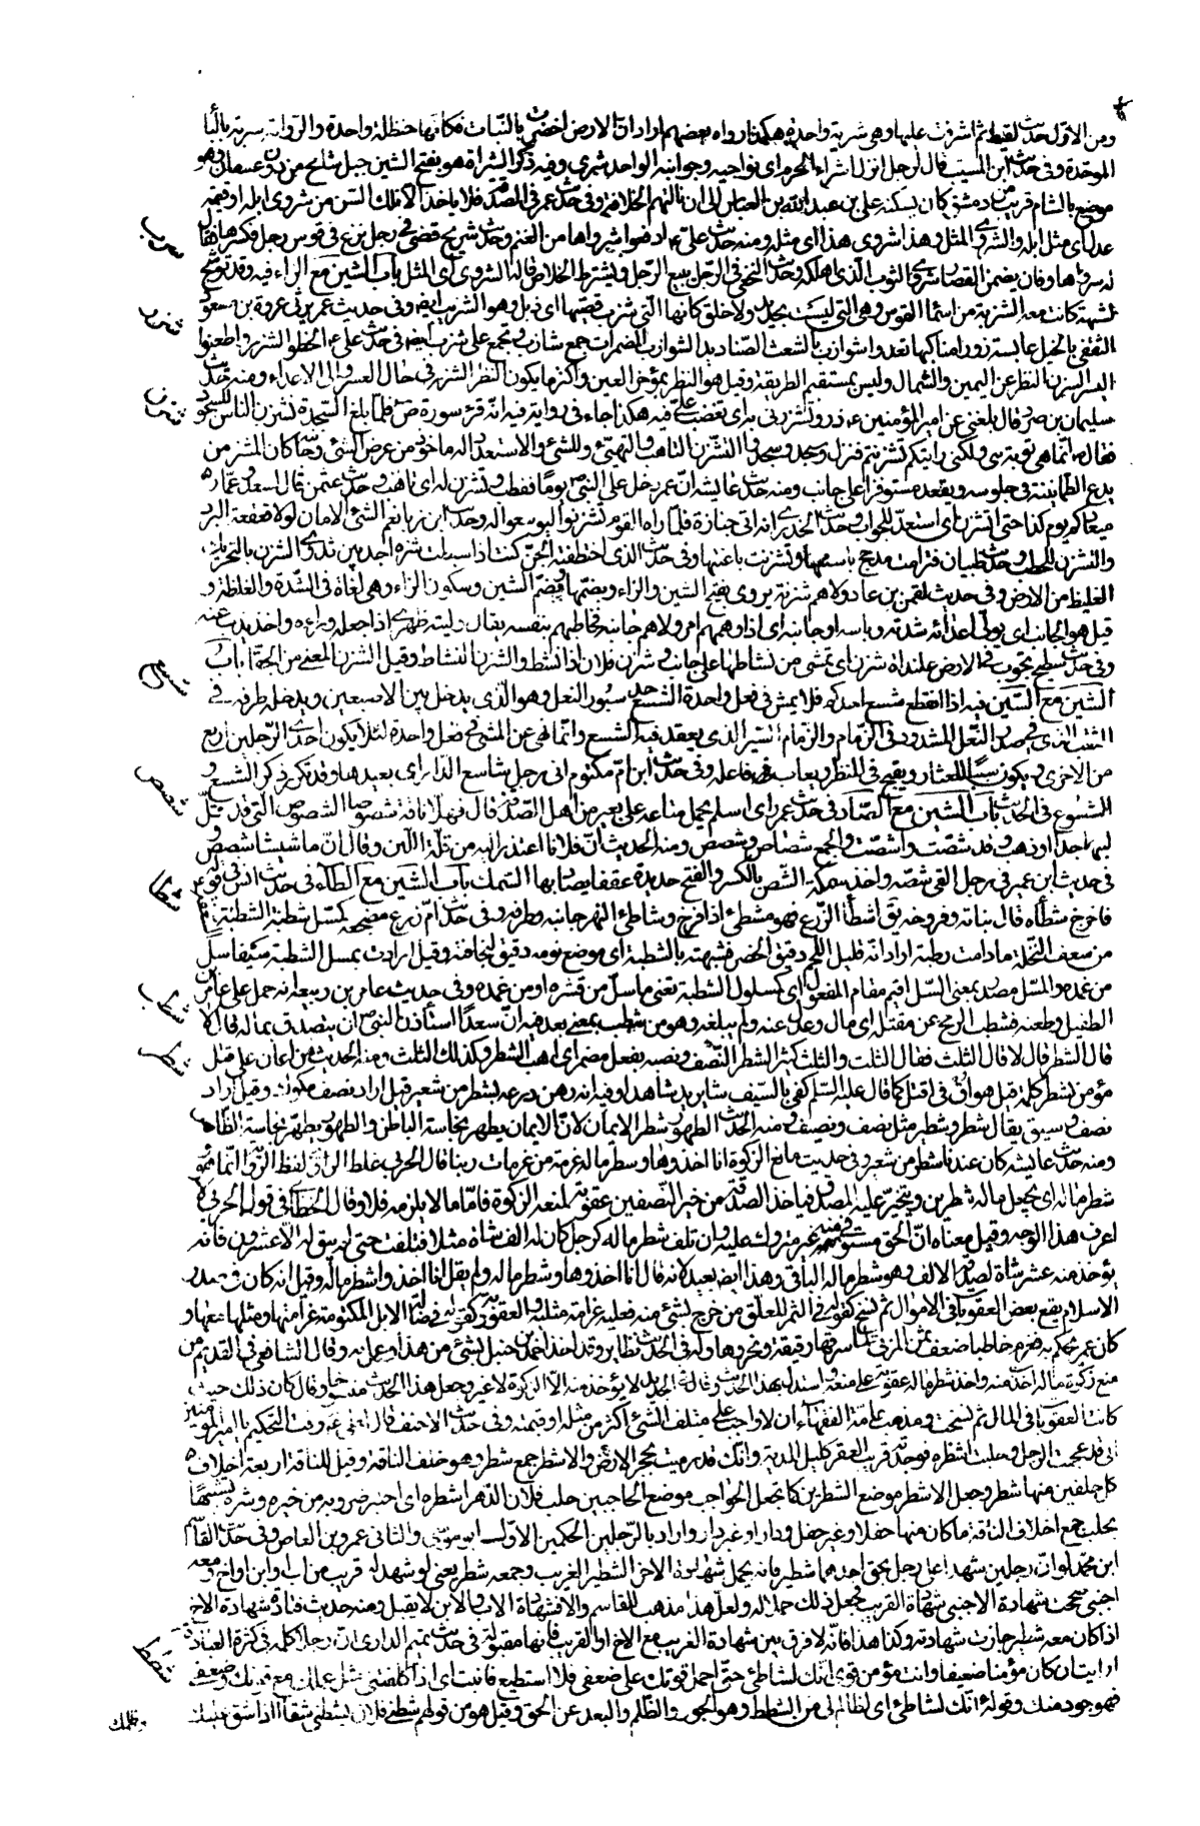 ومن الاول حديث لقيط ثم اشرفت عليها وهى شرية واحدة هكذا رواه بعضهم اراد ان الارض اخضرت بالنبات فكانها حنظلة واحدة والرواية شربة بالبا
الموحدة وفى حديث ابن المسيب قال لرجل انزل اشراء الحرم اى نواحيه وجوانبه الواحد شرى وفيه ذكر الشراة هو بفتح الشين جبل شامخ من دون عسفان وهو
موضع بالشام قريب من دمشق كان يسكنه على بن عبد الله بن العباس الى ان اتتهم الخلافة وفى حديث عمر فى الصدقة فلا ياخذ الا تلك السن من شروى ابله او قيمة
عدل اى مثل ابله والشروى المثل وهذا شروى هذا اى مثله ومنه حديث على ادفعوا شرواها من الغنم وحديث شريح قضى فى رجل نزع فى قوس رجل فكسرها فقال
له شرواها وفان يضمن القصار شروى الثوب الذى اهلكه وحديث النخعى فى الرجل يبيع الرجل ويشترط الخلاص قال له الشروى اى المثل باب الشين مع الزاء فيه وقد توشح
بشزبة كانت معه الشزبة من اسماء القوس وهى التى ليست بجديد ولا خلق كانها التى شزب قضيبها اى ذبل وهو الشزيب ايضا وفى حديث عمر يرثى عروة بن مسعود
الثقفى بالخيل عابسة زورا مناكبها تعدوا شوازب بالشعث الصناديد الشوازب المضمرات جمع شازب ويجمع على شزب ايضا فى حديث على الحظوا الشزر واطعنوا
اليسر الشزر النظر عن اليمين والشمال وليس بمستقيم الطريقة وقيل هو النظر بمؤخر العين واكثر ما يكون النظر الشزر فى حال الغضب والى الاعداء ومنه حديث
سليمان بن صرد قال بلغنى عن امير المؤمنين ذرو تشزر لى به اى تغضب على فيه هكذا جاء فى رواية فيه انه قرء سورة ص فلما بلغ السجدة تشزن الناس للسجود
فقال انما هى توبة نبى ولكنى رايتكم تشزنتم فنزل وسجد وسجدوا التشزن التاهب والتهيئ للشئ والاستعداد له ماخوذ من عرض الشئ وجانبه كان المتشزن
يدع الطمانينة فى جلوسه ويقعد مستوفزا على جانب ومنه حديث عايشة ان عمر دخل على النبى يوما فقطب وتشزن له اى تاهب وحديث عثمن قال لسعد وعمار
ميعادكم يوم كذا حتى اتشزن اى استعد للجواب وحديث الخدرى انه اتى جنازة فلما راه القوم تشزنوا ليوسعوا له وحديث ابن زياد نعم الشئ الامارة لولا قعقعة البرد
والتشزن للخطب وحديث ظبيان فترامت مذحج باسنتها وتشزنت باعنتها وفى حديث الذى اختطفته الجن كنت اذا هبطت شزنا اجده بين ثندوى الشزن بالتحريك
الغليظ من الارض وفى حديث لقمن بن عاد ولاهم شزنه يروى بفتح الشين والزاء وبضمهما وبضم الشين وسكون الزاء وهى لغات فى الشدة والغلظة و
قيل هو الجانب اى يولى اعداءه شدته وباسه او جانبه اى اذا دهمهم امر ولاهم جانبه فحاطهم بنفسه يقال وليته ظهرى اذا جعله وراءه واخذ يذب عنه
وفى حديث سطيح تجوب بى الارض علنداة شزن اى تمشى من نشاطها على جانب وشزن فلان اذا نشط والشزن النشاط وقيل الشزن المعيى من الحفا باب
الشين مع السين فيه اذا انقطع شسع احدكم فلا يمش فى نعل واحدة الشسع احد سيور النعل وهو الذى يدخل بين الاصبعين ويدخل طرفه فى
الثقب الذى فى صدر النعل المشدود فى الزمام والزمام السير الذى يعقد فيه الشسع وانما نهى عن المشى فى نعل واحدة لئلا يكون احدى الرجلين ارفع
من الاخرى ويكون سببا للعثار ويقبح فى المنظر ويعاب فاعله وفى حديث ابن ام مكتوم انى رجل شاسع الدار اى بعيدها وقد تكرر ذكر الشسع و
الشسوع فى الحديث باب الشين مع الصاد فى حديث عمر راى اسلم يحمل متاعه على بعير من ابل الصدقة قال فهلا ناقة شصوصا الشصوص التى قد قل
لبنها جدا او ذهب وقد شصت واشصت والجمع شصائص وشصص ومنه الحديث ان فلانا اعتذر اليه من قلة اللبن وقال ان ماشيتنا شصص و
فى حديث ابن عمير فى رجل القى شصه واخذ سمكة الشص بالكسر والفتح حديدة عقفاء يصاد بها السمك باب الشين مع الطاء فى حديث انس فى قوله
فاخرج شطأه قال نباته وفروخه يق اشطأ الزرع فهو مشطئ اذا فرخ وشاطئ النهر جانبه وطرفه وفى حديث ام زرع مضجعه كمسل شطبة الشطبة
من سعف النخلة ما دامت رطبة اراد انه قليل اللحم دقيق الخصر فشبهته بالشطبة اى موضع نومه دقيق لنحافته وقيل ارادت بمسل الشطبة سيفا سل
من غمده والمسل مصدر بمعنى السل اقيم مقام المفعول اى كمسلول الشطبة تعنى ما سل من قشره او من غمده وفى حديث عامر بن ربيعة انه حمل على عامر بن
الطفيل وطعنه فشطب الرمح عن مقتله اى مال وعدل عنه ولم يبلغه وهو من شطب بمعنى بعد فيه ان سعدا استأذن النبى ان يتصدق بماله قال لا
قال الشطر قال لا قال الثلث فقال الثلث والثلث كثير الشطر النصف ونصبه بفعل مضمر اى اهب الشطر وكذلك الثلث ومنه الحديث من اعان على قتل
مؤمن بشطر كلمة قيل هو ان يق فى اقتل كما قال عليه السلم كفى بالسيف شا يريد شاهدا وفيه انه رهن درعه بشطر من شعير قيل اراد نصف مكوك وقيل اراد
نصف وسق يقال شطر وشطير مثل نصف ونصيف ومنه الحديث الطهور شطر الايمان لان الايمان يطهر نجاسة الباطن والطهور يطهر نجاسة الظاهر
ومنه حديث عايشة كان عندنا شطر من شعير وفى حديث مانع الزكوة انا اخذوها وشطر ماله عزمة من عزمات ربنا قال الحربى غلط الراوى فى لفظ الرواية انما هو
شطر ماله اى يجعل ماله شطرين ويتخير عليه المصدق فياخذ الصدقة من خير النصفين عقوبة لمنعه الزكوة فاما ما لا يلزمه فلا وقال الخطابى فى قول الحربى لا
اعرف هذا الوجه وقيل معناه ان الحق مستوفى منه غير متروك عليه وان تلف شطر ماله كرجل كان له الف شاة مثلا فتلفت حتى لم يبق له الا عشرون فانه
يؤخذ منه عشر شياة لصدقة الالف وهو شطر ماله الباقى وهذا ايضا بعيد لانه قال انا اخذوها وشطر ماله ولم يقل انا اخذوا شطر ماله وقيل انه كان فى صدر
الاسلام يقع بعض العقوبات فى الاموال ثم نسخ كقوله فى الثمر المعلق من خرج بشئ منه فعليه غرامة مثليه والعقوبة وكقوله فى ضالة الابل المكتومة غرامتها ومثلها معها و
كان عمر يحكم به فغرم حاطبا ضعف ثمن ناقة المزنى لما سرقها رقيقه ونحروها وله فى الحديث نظاير وقد اخذ احمد بن حنبل بشئ من هذا وعمل به وقال الشافعى فى القديم من
منع زكوة ماله اخذت منه واخذ شطر ماله عقوبة على منعه واستدل بهذا الحديث وقال فى الجديد لا يؤخذ منه الا الزكوة لا غير وجعل هذا الحديث منسوخا وقال كان ذلك حيث
كانت العقوبات فى المال ثم نسخت ومذهب عامة الفقهاء ان لا واجب على متلف الشئ اكثر من مثله او قيمته وفى حديث الاحنف قال لعلى وقت التحكيم يا امير المؤمنين
انى قد عجمت الرجل وحلبت اشطره فوجدته قريب القعر كليل المدية وانك قد رميت بحجر الارض والاشطر جمع شطر وهو خلف الناقة وقيل للناقة اربعة اخلاف
كل خلفين منها شطر وجعل الاشطر موضع الشطرين كما تجعل الحواجب موضع الحاجبين حلب فلان الدهر اشطره اى اختبر ضروبه من خيره وشره تشبيها
بحلب جمع اخلاف الناقة ما كان منها حفلا وغير حفل ودارا وغير دار واراد بالرجلين الحكمين الاول ابو موسى والثانى عمرو بن العاص وفى حديث القاسم
ابن محمد لو ان رجلين شهدا على رجل بحق احدهما شطير فانه يحمل شهادة الاخر الشطير الغريب وجمعه شطر يعنى لو شهد له قريب من اب او ابن او اخ ومعه
اجنبى صححت شهادة الاجنبى شهادة القريب فجعل ذلك حملا له ولعل هذا مذهب للقاسم والا فشهادة الاب والابن لا يقبل ومنه حديث قتادة شهادة الاخ
اذا كان معه شطير جازت شهادته وكذا هذا فانه لا فرق بين شهادة الغريب مع الاخ او القريب فانها مقبولة فى حديث تميم الدارى ان رجلا كلمه فى كثرة العبادة
ارايت ان كان مؤمنا ضعيفا وانت مؤمن قوى انك لشاطئ حتى احمل قوتك على ضعفى فلا استطيع فانبت اى اذا كلفتنى مثل عملك مع قوتك وضعفى
فهو جور منك وقوله انك لشاطئ اى لظالم لى من الشطط وهو الجور والظلم والبعد عن الحق وقيل هو من قولهم شطنى فلان يشطنى شطا اذا شق عليك
وظلمك
شزب
شزر
شزن
شسع
شصص
شطا
شطب
شطر
شطط